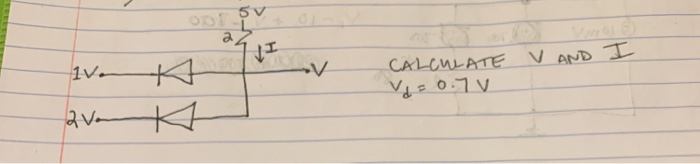 5V
2
I
1V
V
2V
CALCULATE V AND I
Vd = 0.7V